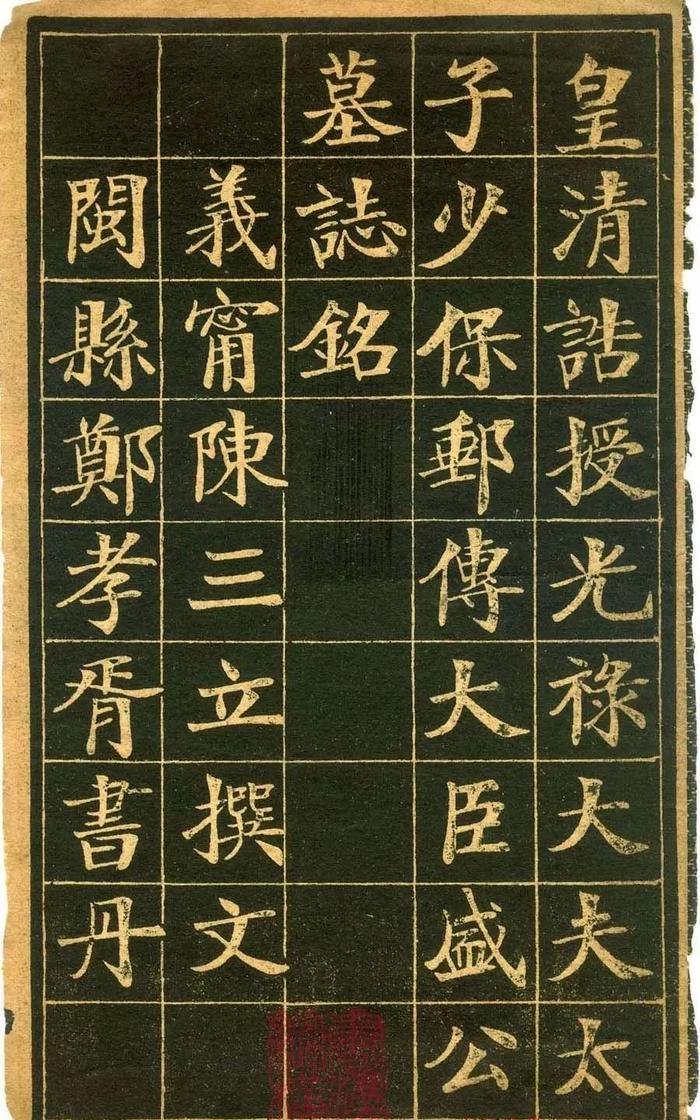 皇清誥授光祿大夫太
子少保郵傳大臣盛公
墓誌銘
義甯陳三立撰文
閩縣鄭孝胥書丹